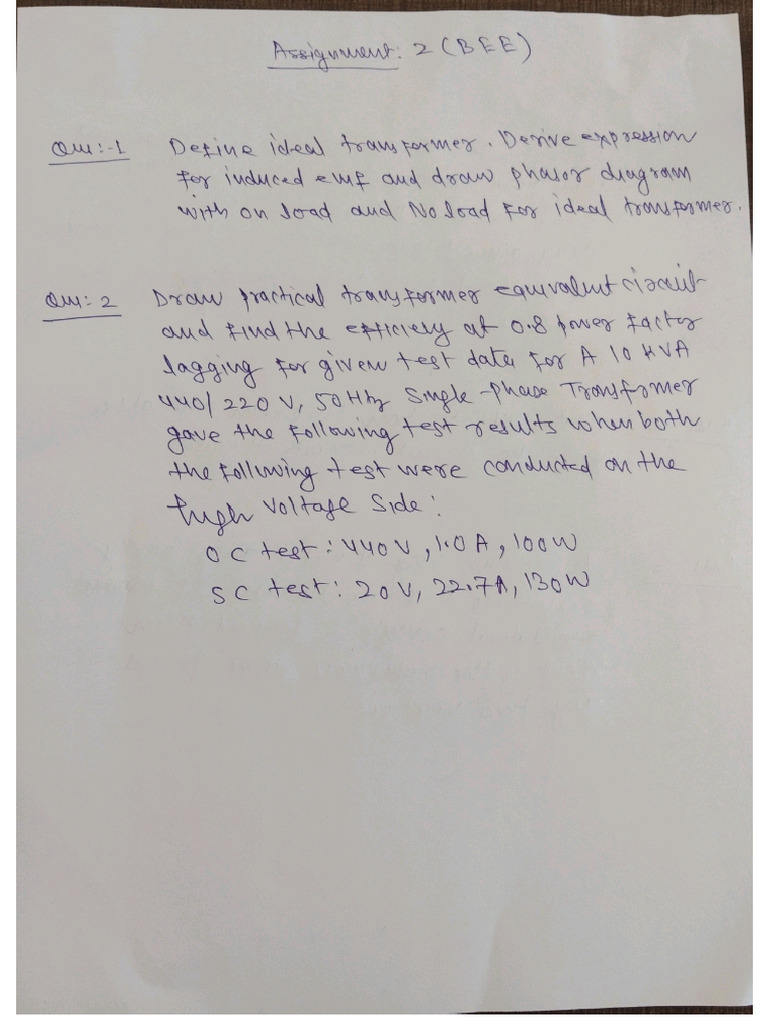 Assignment: 2 (BEE)
Qus:-1 Define ideal transformer. Derive expression
for induced emf and draw phasor diagram
with on load and No load for ideal transformer.
Qus: 2 Draw practical transformer equivalent circuit
and find the efficiery at 0.8 power factor
lagging for given test data for A 10 KVA
440/220 V, 50 Hz Single-phase Transformer
gave the following test results when both
the following test were conducted on the
high voltage side:
OC test: 440 V, 1.0 A, 100 W
SC test: 20 V, 22.7A, 130 W